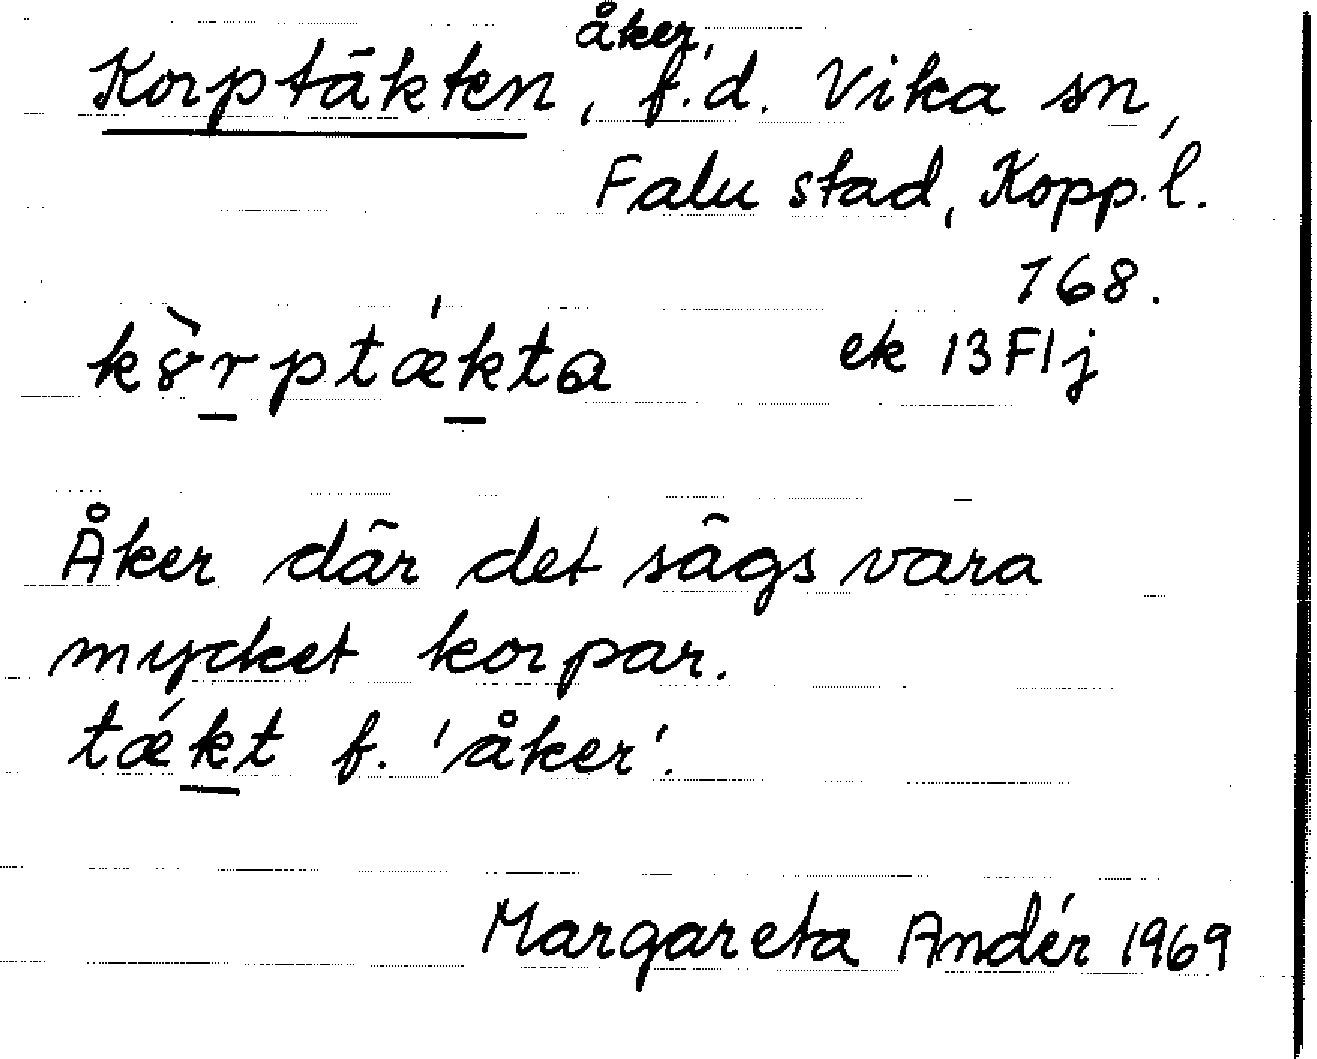 Korptäkten, åker, f.d. Vika sn,
Falu stad, Kopp.l.
168.
kȣ̀rptǽkta ek 13Flj
Åker där det sägs vara
mycket korpar.
tǽkt f. 'åker'.
Margareta Andér 1969